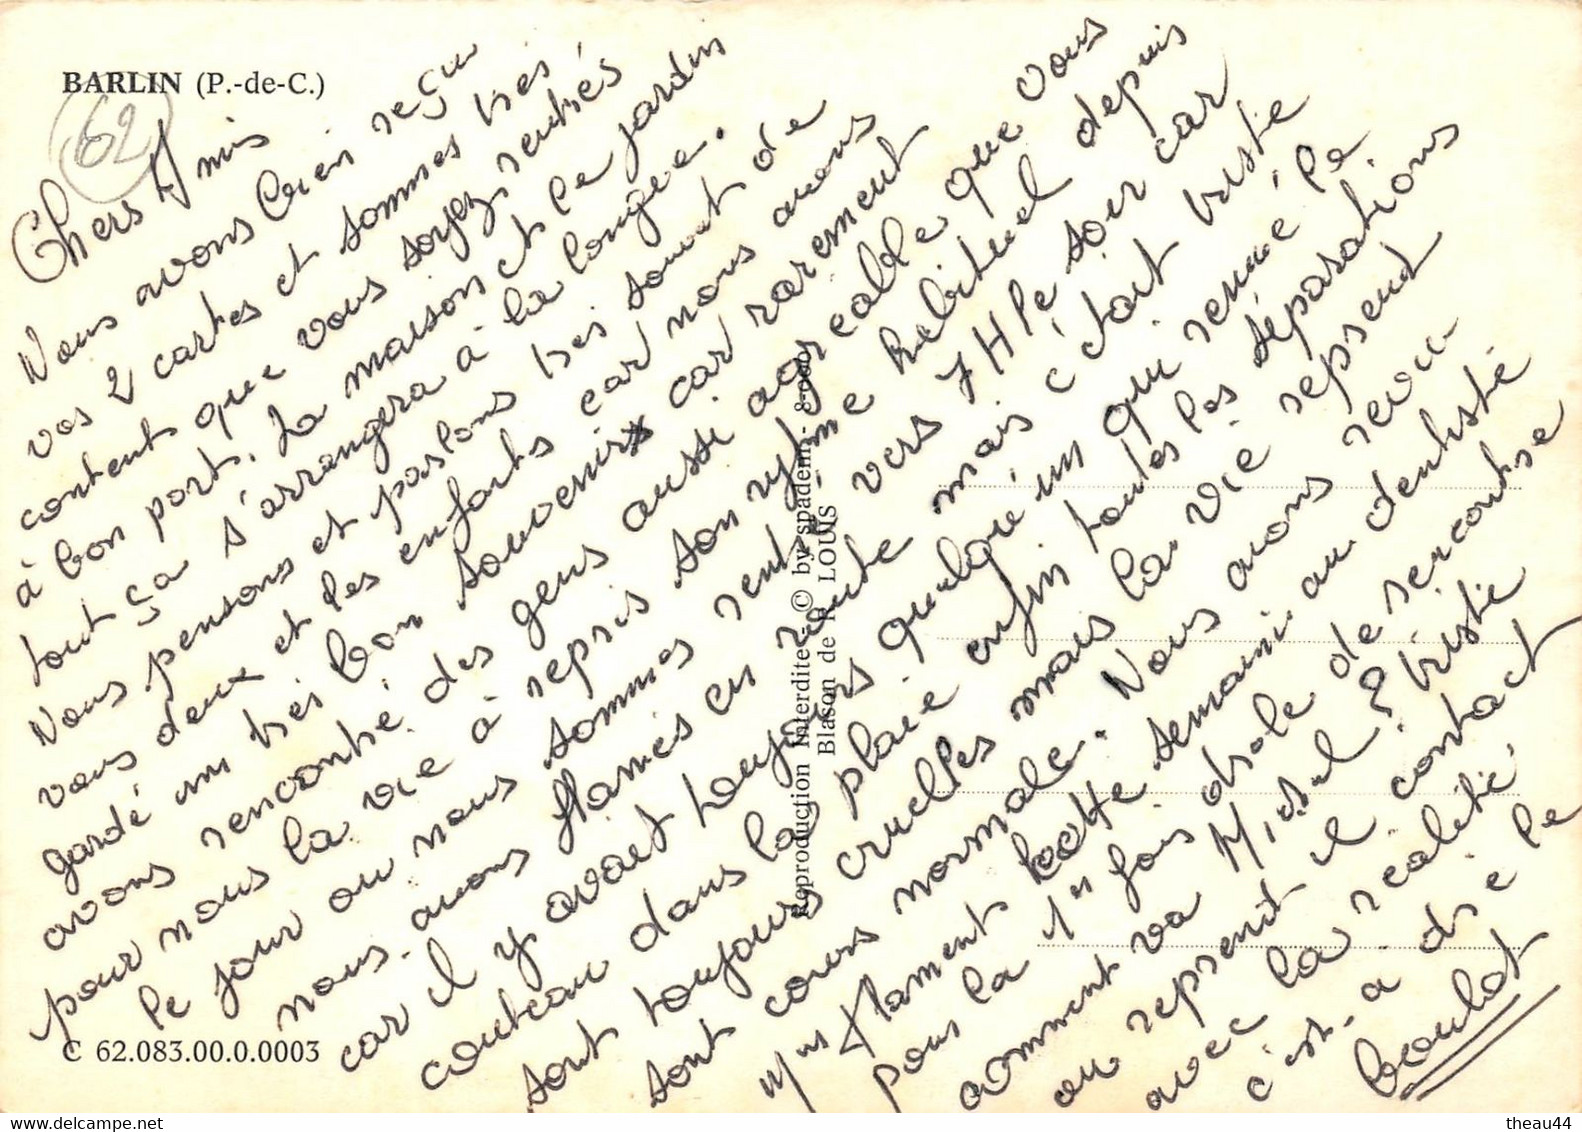 BARLIN (P.-de-C.)
62
Chers Amis
Nous avons bien reçu
vos 2 cartes et sommes très
content que vous soyez rentrés
à bon port. La maison et le jardin
tout ça s'arrangera à la longue.
Nous pensons et parlons très souvent de
vous deux et les enfants car nous avons
gardé un très bon souvenir car rarement
avons rencontré des gens aussi agréable que vous
pour nous la vie à repris son rytme habituel depuis
le jour ou nous sommes rentré vers 7H le soir car
nous avons flanés en route mais c'était triste
car il y avait toujours quelqu'un qui remué le
couteau dans la plaie enfin toutes les séparations
sont toujours cruelles mais la vie reprent
sont cours normale. Nous avons revou
Mme flament cette semaine au dentiste
pour la 1er fois drole de rencontre
comment va Michel ? triste
ou reprend il contact
avec la réalité,
c'est-a dire le
boulot
Reproduction Interdite © by spadem - 8-000
Blason de R. LOUIS
C 62.083.00.0.0003
delcampe.net
theau44